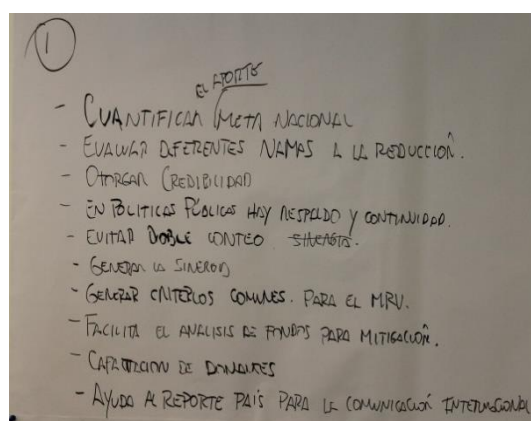 1
EL APORTE
- CUANTIFICAR META NACIONAL
- EVALUAR DIFERENTES NAMAS A LA REDUCCIÓN.
- OTORGAR CREDIBILIDAD
- EN POLITICAS PÚBLICAS HAY RESPALDO Y CONTINUIDAD.
- EVITAR DOBLE CONTEO SINERGIA.
- GENERAR LA SINERGIA
- GENERAR CRITERIOS COMUNES. PARA EL MRV.
- FACILITA EL ANALISIS DE FONDOS PARA MITIGACIÓN.
- CAPATACION DE DONANTES
- AYUDA AL REPORTE PAÍS PARA LA COMUNICACIÓN INTERNACIONAL